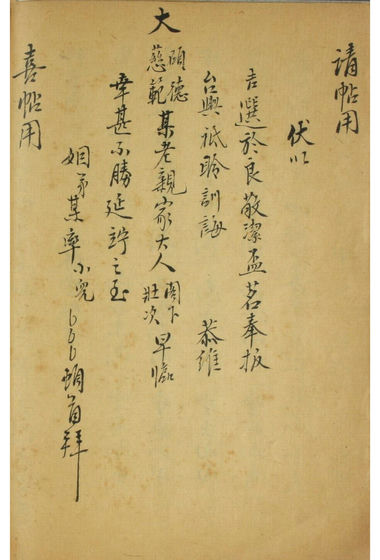 請帖用
伏以
吉選於良敬潔盃茗奉扳
台輿祗聆訓誨 恭維
大
碩德
慈範 某老親家大人 閣下
壯次 早臨
幸甚不勝延竚之至
姻弟某率小兒 頓首拜
喜帖用